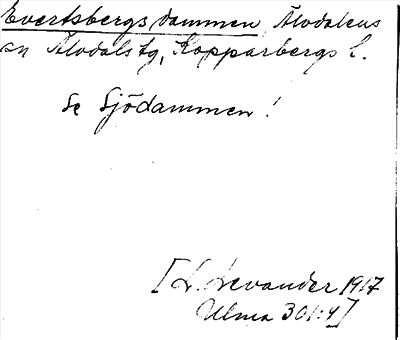 Evertsbergs dammen Älvdalens
sn Älvdals tg, Kopparbergs l.
Se Sjödammen!
[L. Levander 1917
Ulma 301:4]